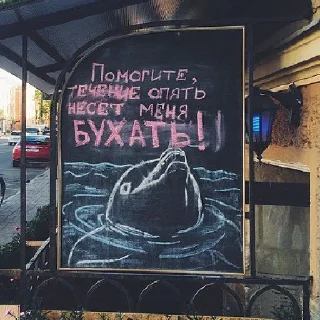 Помогите,
течение опять
несёт меня
БУХАТЬ!